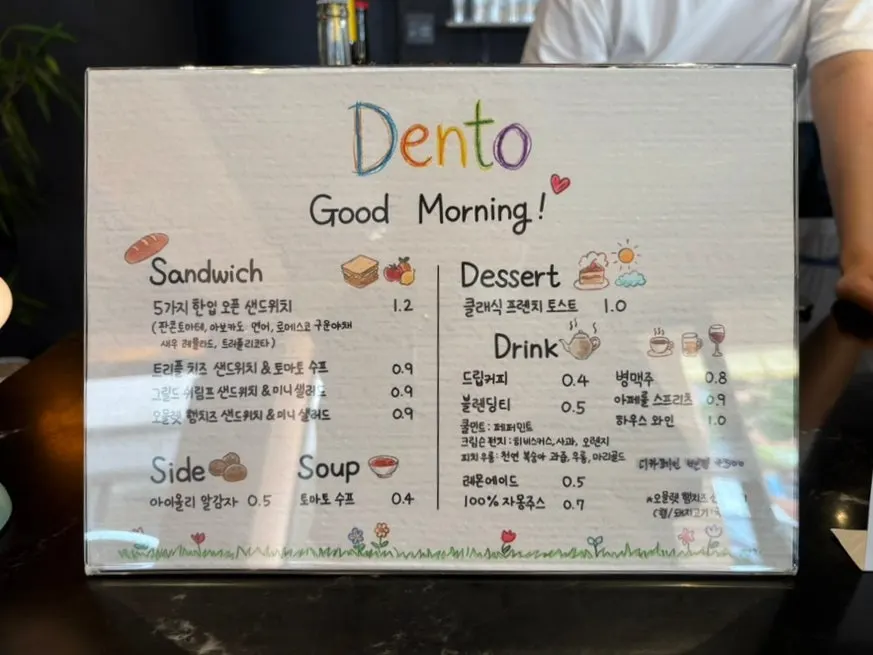 Dento
Good Morning!
Sandwich
5가지 한입 오픈 샌드위치 1.2
(판콘토마테, 아보카도 연어, 로메스코 구운야채
새우 레물라드, 트러플리코타)
트리플 치즈 샌드위치 & 토마토 수프 0.9
그릴드 쉬림프 샌드위치 & 미니 샐러드 0.9
오믈렛 햄치즈 샌드위치 & 미니 샐러드 0.9
Side
아이올리 알감자 0.5
Soup
토마토 수프 0.4
Dessert
클래식 프렌치 토스트 1.0
Drink
드립커피 0.4
블렌딩티 0.5
쿨민트: 페퍼민트
크림슨 펀치: 히비스커스, 사과, 오렌지
피치 우롱: 천연 복숭아 과즙, 우롱, 마리골드
레몬에이드 0.5
100% 자몽주스 0.7
병맥주 0.8
아페롤 스프리츠 0.9
하우스 와인 1.0
디카페인
*오믈렛 햄치즈
(햄/돼지고기: